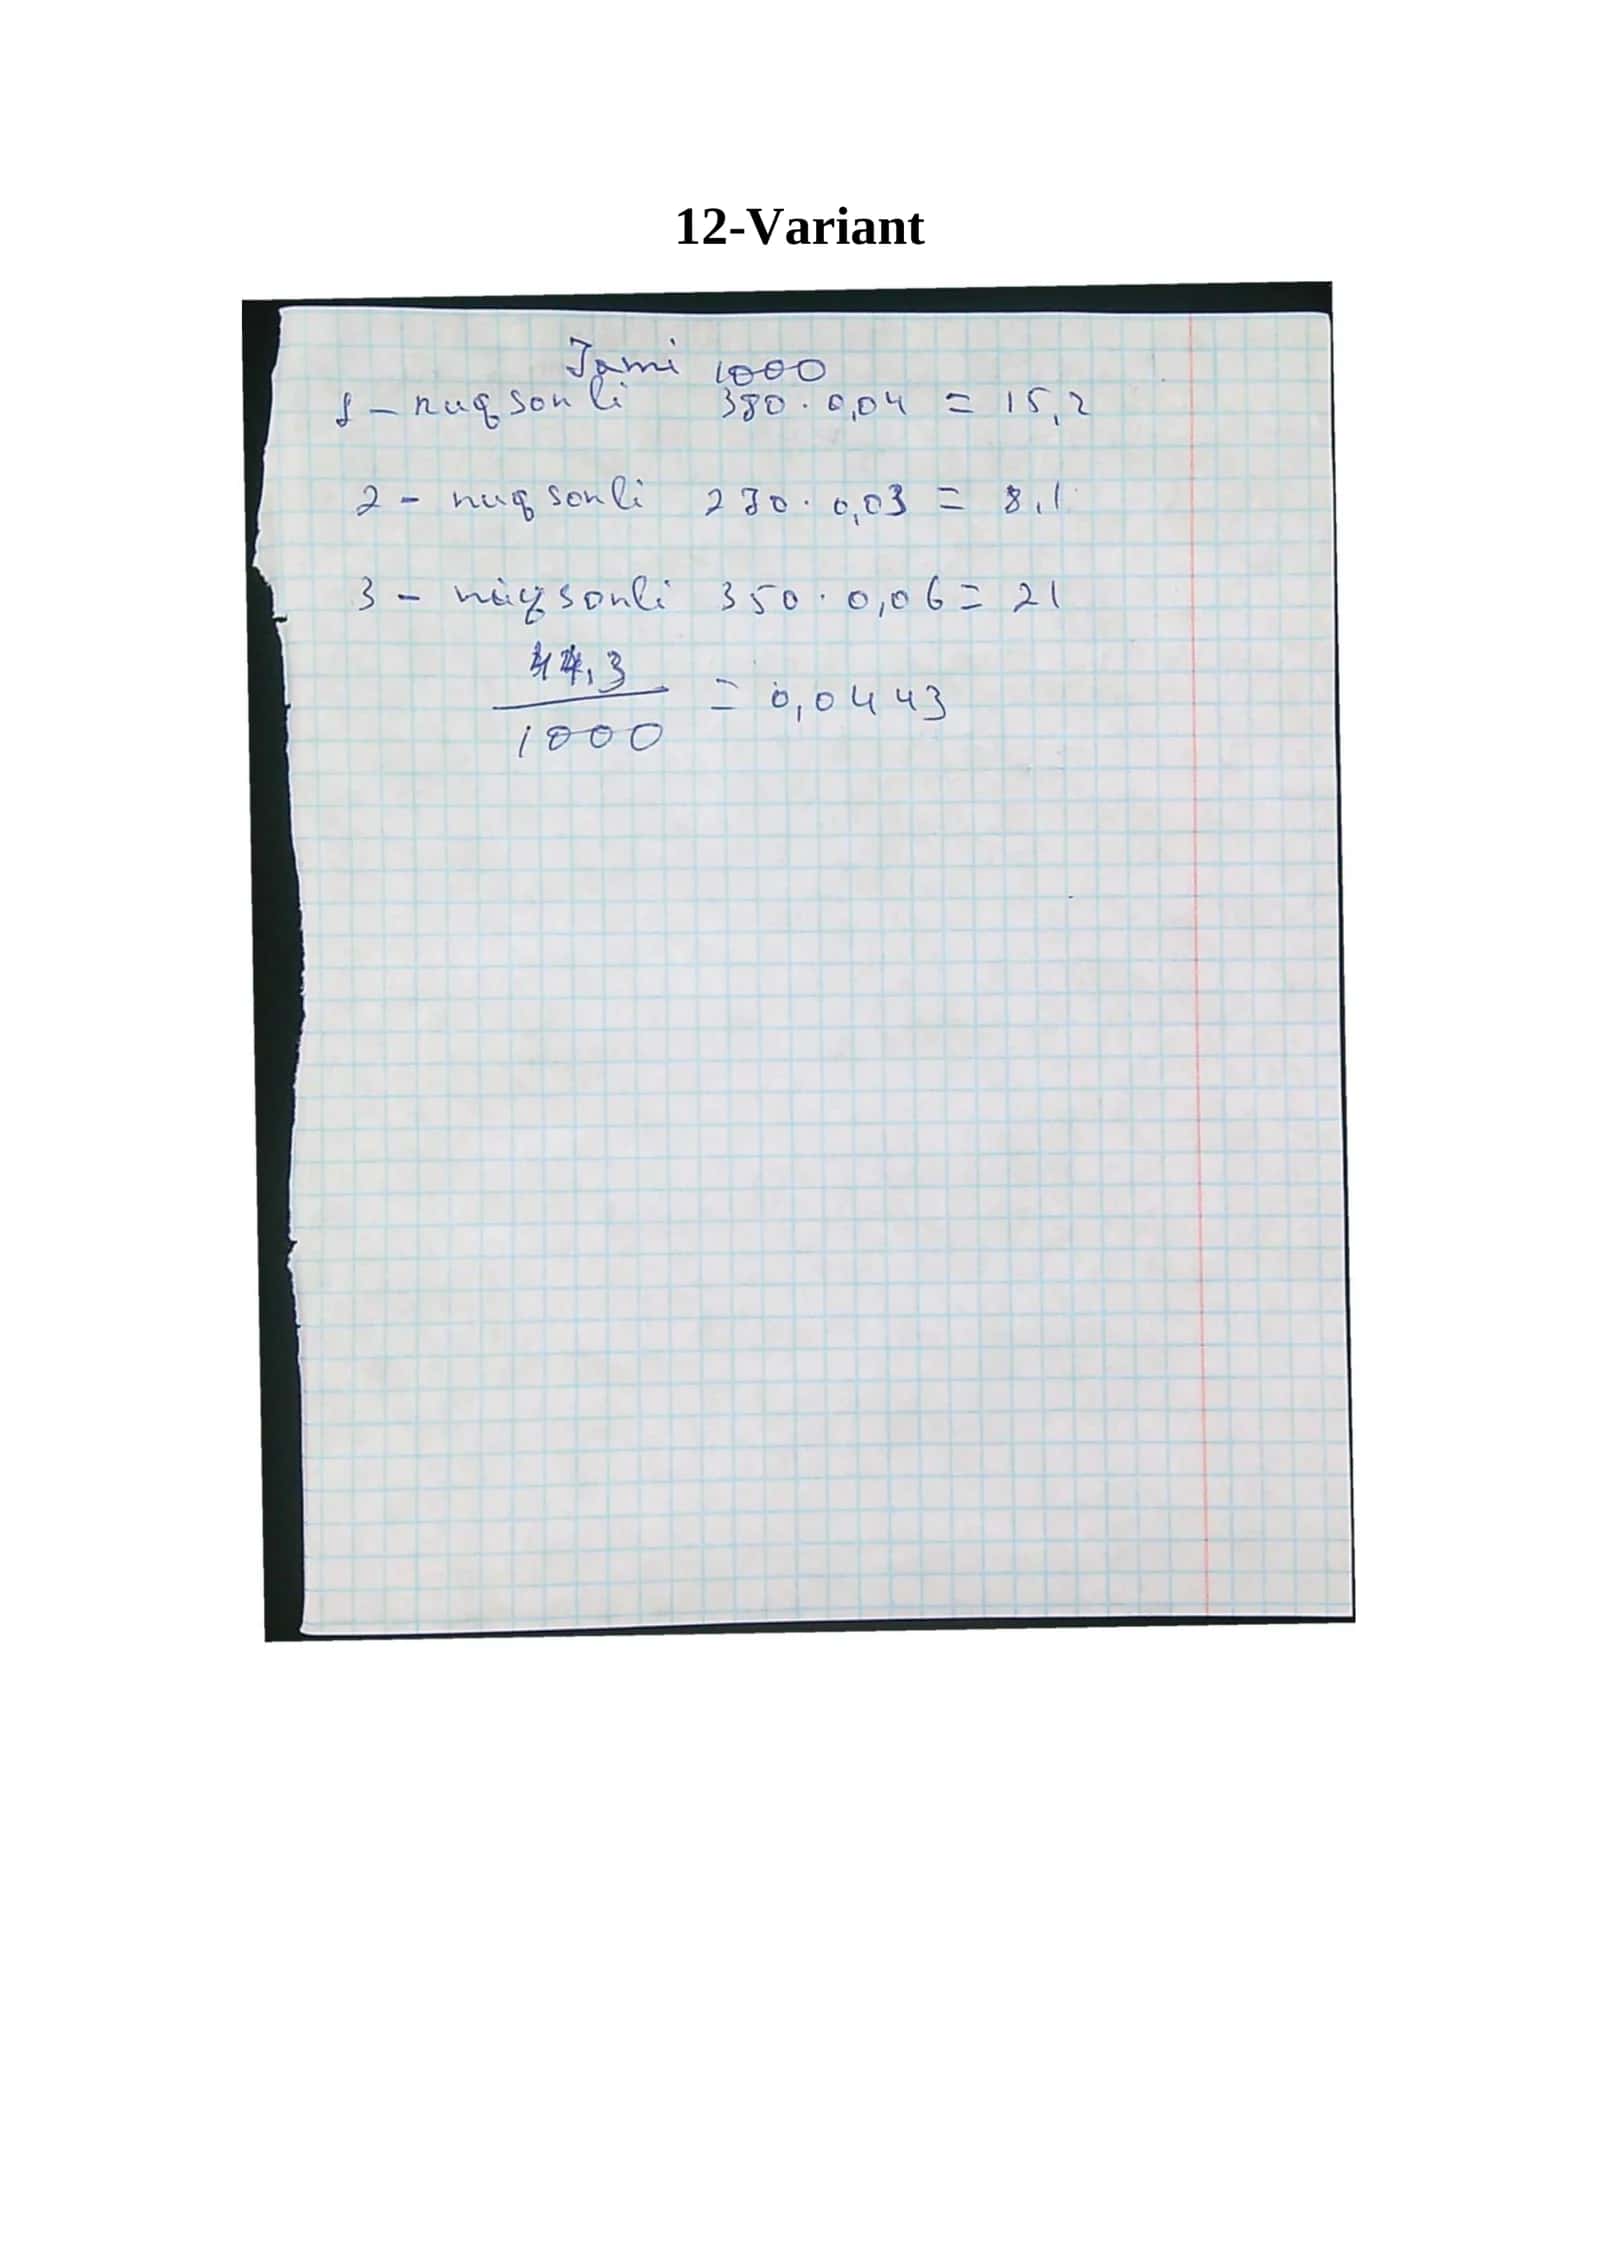 12-Variant
Jami 1000
1 - nuqsonli 380 · 0,04 = 15,2
2 - nuqsonli 270 · 0,03 = 8,1
3 - nuqsonli 350 · 0,06 = 21
44,3
1000
= 0,0443